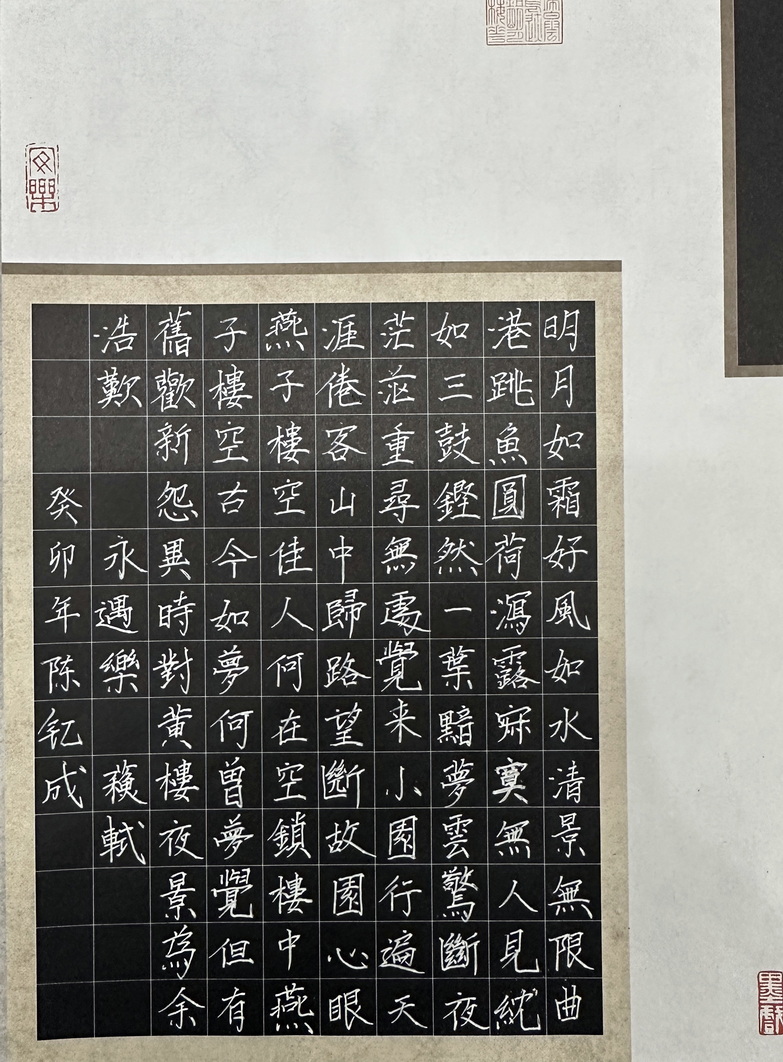 明月如霜好風如水清景無限曲
港跳魚圓荷瀉露寂寞無人見紞
如三鼓鏗然一葉黯夢雲驚斷夜
茫茫重尋無處覺来小園行遍天
涯倦客山中歸路望斷故園心眼
燕子樓空佳人何在空鎖樓中燕
子樓空古今如夢何曾夢覺但有
舊歡新怨異時對黃樓夜景為余
浩歎 永遇樂 蘇軾
癸卯年陈钇成
安樂
墨戲